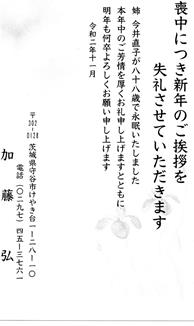 喪中につき新年のご挨拶を
失礼させていただきます
姉 今井直子が八十八歳で永眠いたしました
本年中のご芳情を厚くお礼申し上げますとともに
明年も何卒よろしくお願い申し上げます
令和二年十一月
〒302-0128
茨城県守谷市けやき台一-二八-一〇
電話 (〇二九七) 四五-三七六一
加藤 弘